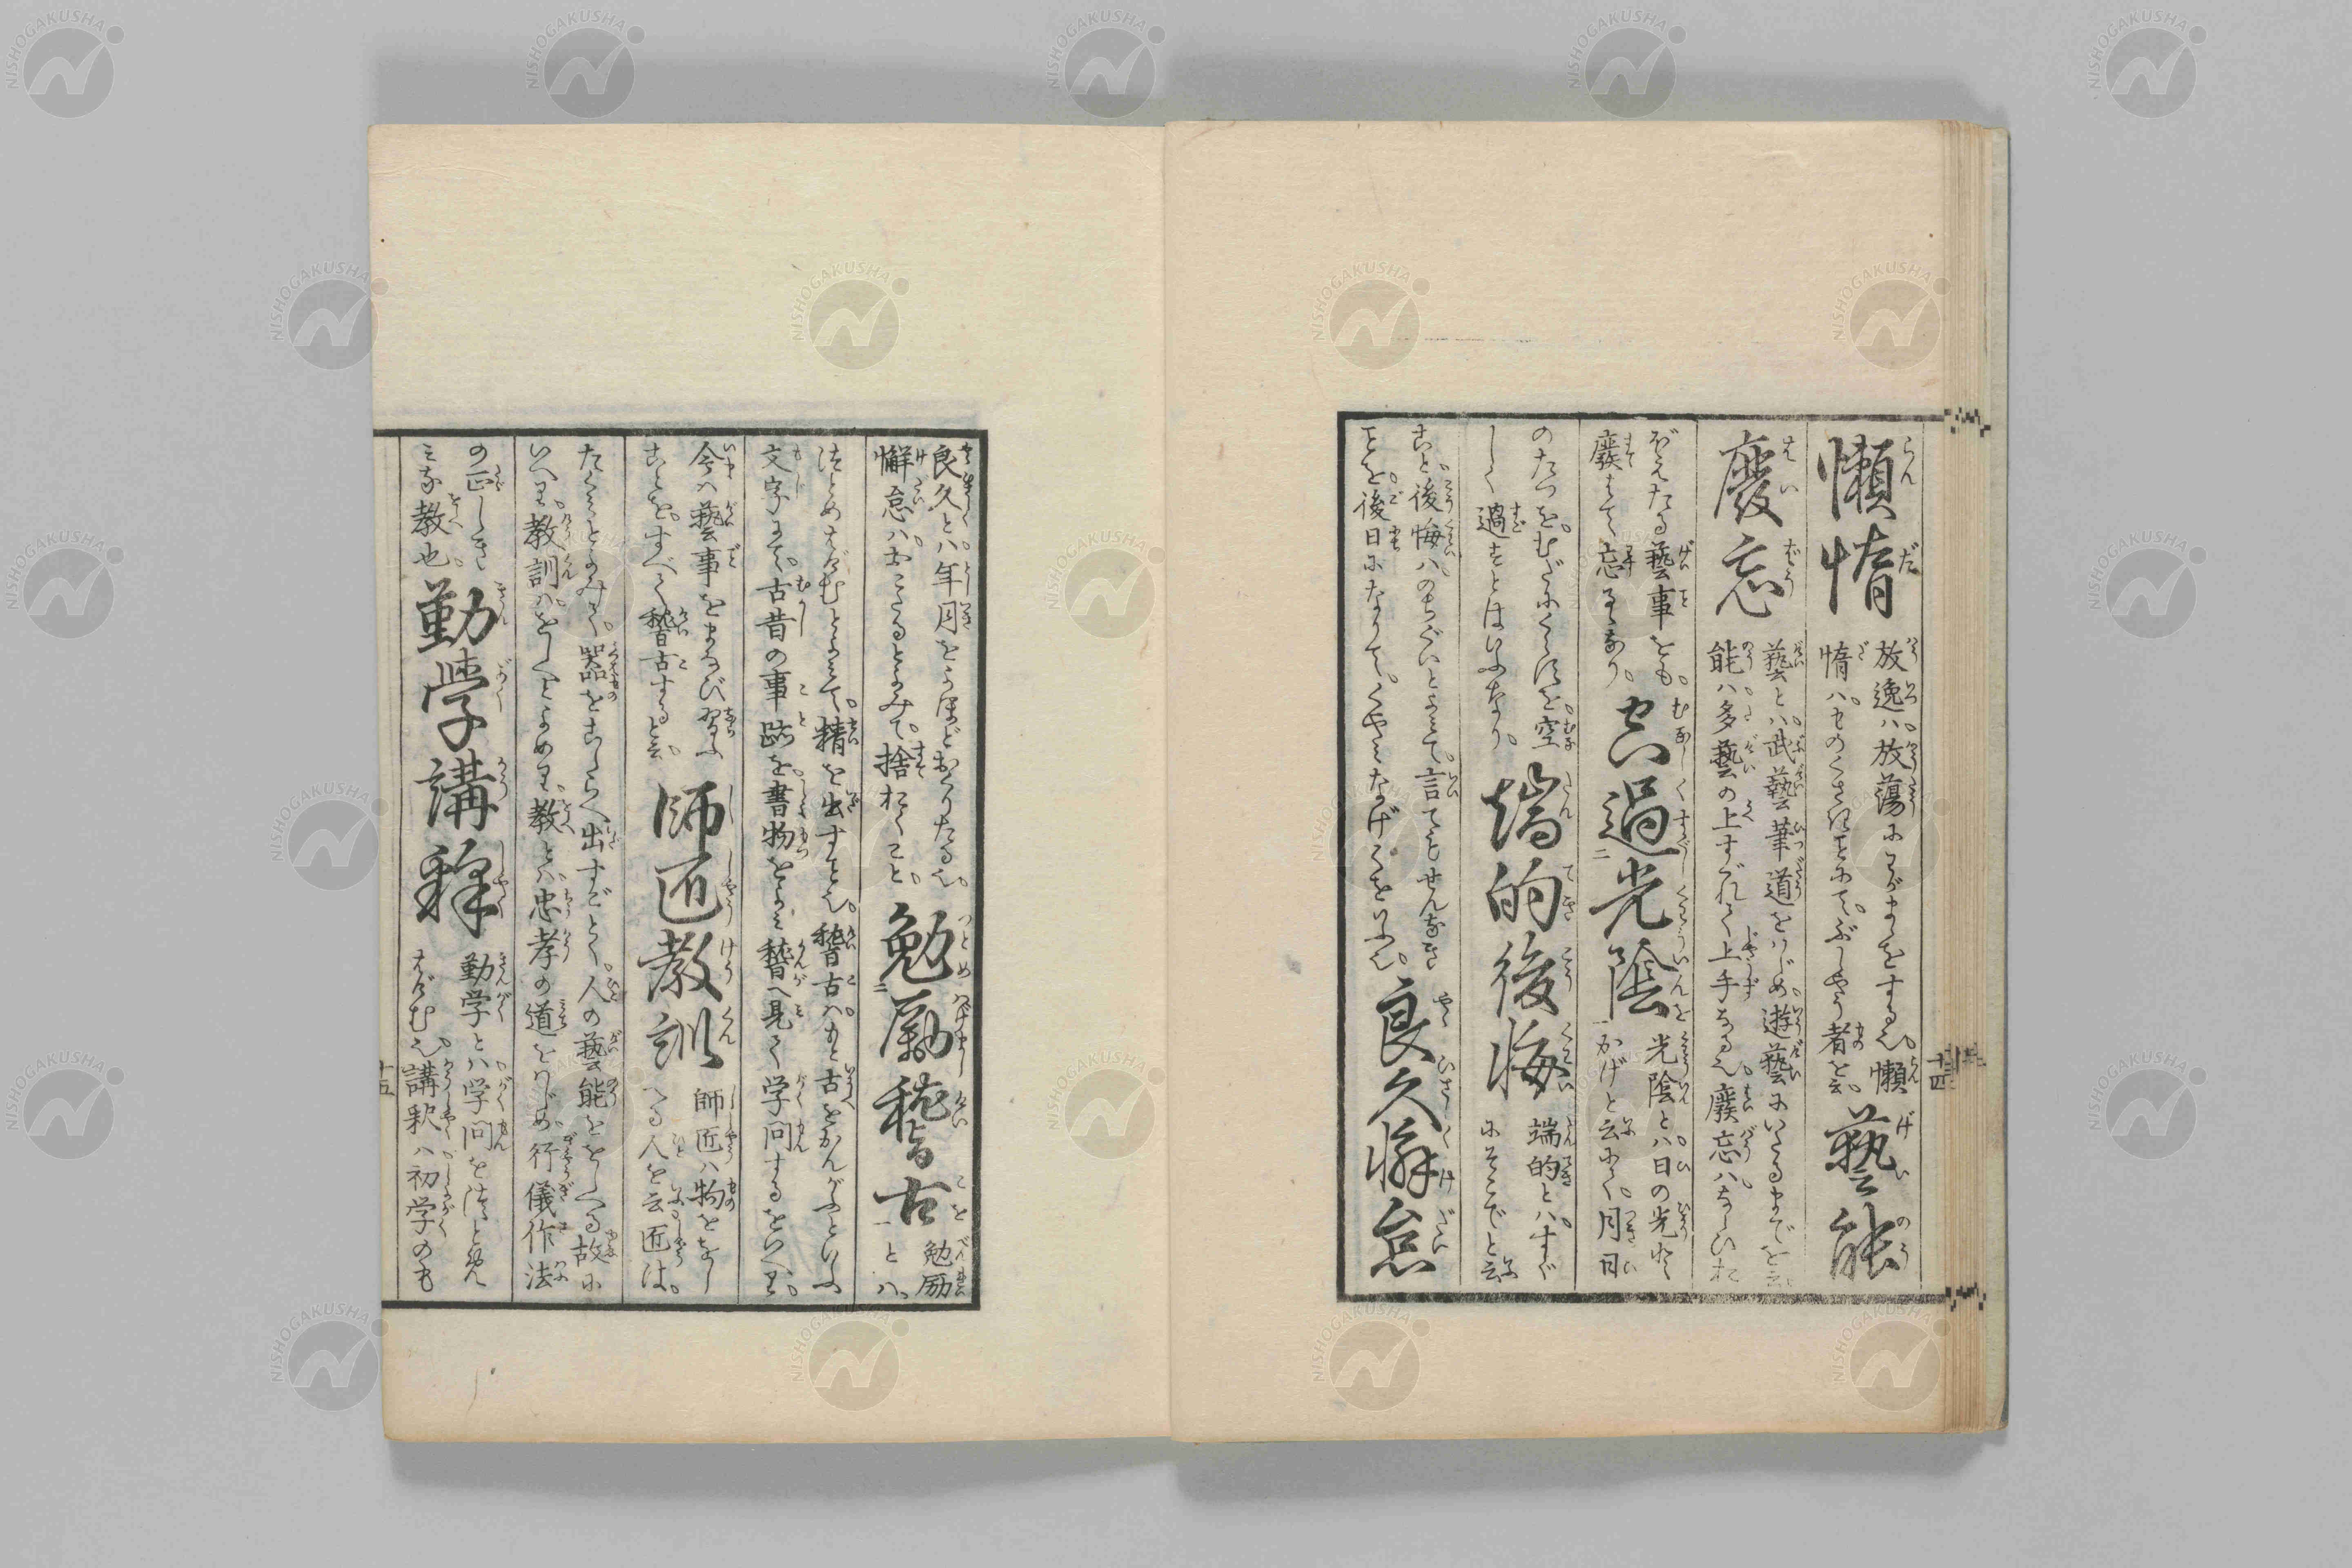 懶惰
放逸ハ。放蕩にわがまゝをする也。懶
惰ハ。ものくさき事にて。ぶしやう者を云。
藝能
廢忘
藝とハ。武藝筆道をはじめ。遊藝にいたるまでを云
能ハ。多藝の上すぐれて上手なる也。廢忘ハ。ならひお
ぼえたる藝事をも。
廢すてゝ忘るゝなり。
空過光陰
光陰とハ。日の光り
かげと云にて。月日
のたつを。むだにくらすを。空
しく過すとはいふなり。
端的後悔
端的とハ。すぐ
にそこでと云
こと。後悔ハ。のちぐいとよみて。言てもせんなき
ことを。後日になりて。くやみなげくをいふ也。
良久懈怠
良久とハ。年月をよほどおくりたる也。
懈怠ハ。おこたるとよみて。捨おくこと。
勉勵稽古
勉励
とハ。
つとめはげむとよみて。精を出すこと也。稽古ハもと古をかんがふといふ
文字にて。古昔の事跡を。書物をよみ稽へ見て学問するをいへり。
今ハ藝事をまなび習ふ
ことを。すべて稽古すると云。
師匠教訓
師匠ハ物をおし
へる人を云匠は。
たくみとよみて。器品をこしらへ出すごとく。人の藝能ををしへる故に
いへり。教訓ハ。をしへとよめり。教とハ。忠孝の道をはじめ。行儀作法
の正しきこ
みな教也。
勤学講釋
勤学とハ。学問をつとめ
はげむ也。講釈ハ初学のも
十四
十五
NISHOGAKUSHA